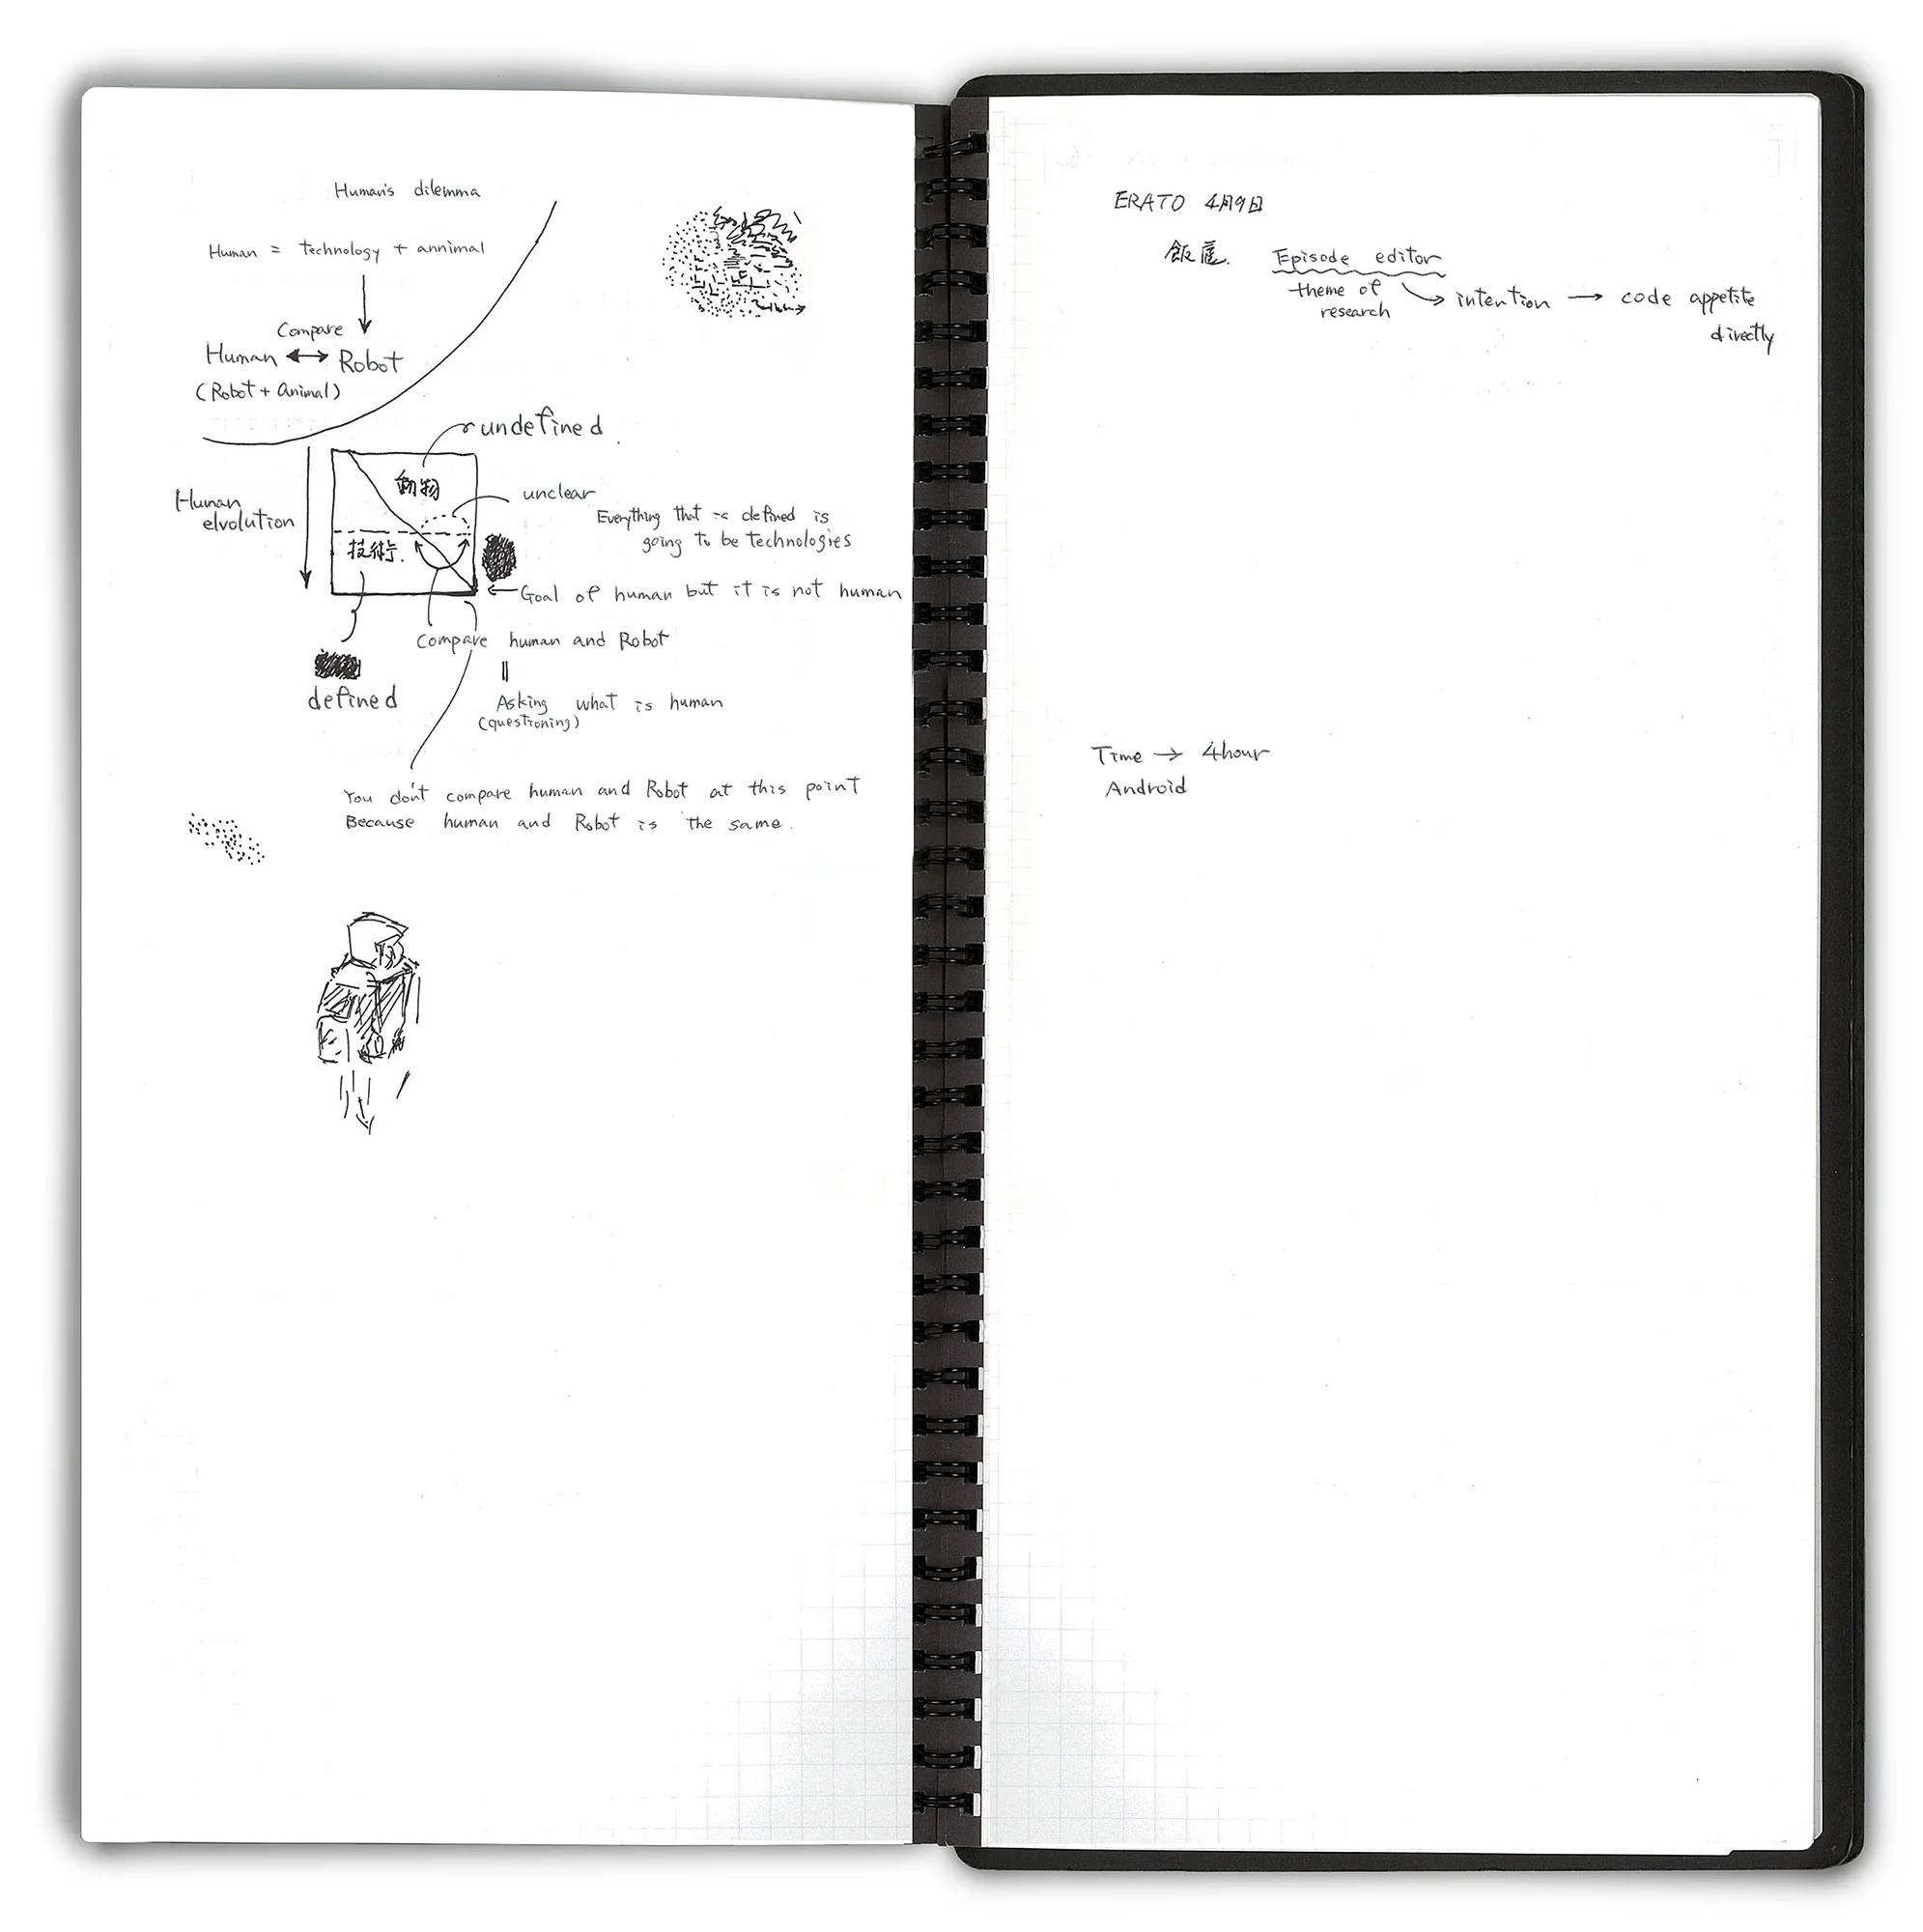 Human's dilemma
Human = technology + annimal
Compare
Human ↔ Robot
(Robot + animal)
undefined.
動物
unclear
Human
elvolution
Everything that is defined is
going to be technologies
技術.
← Goal of human but it is not human
Compare human and Robot
||
defined
Asking what is human
(questioning)
You don't compare human and Robot at this point
Because human and Robot is the same.
ERATO 4月9日
飯尾. Episode editor
theme of
research
intention → code appetite
directly
Time → 4hour
Android